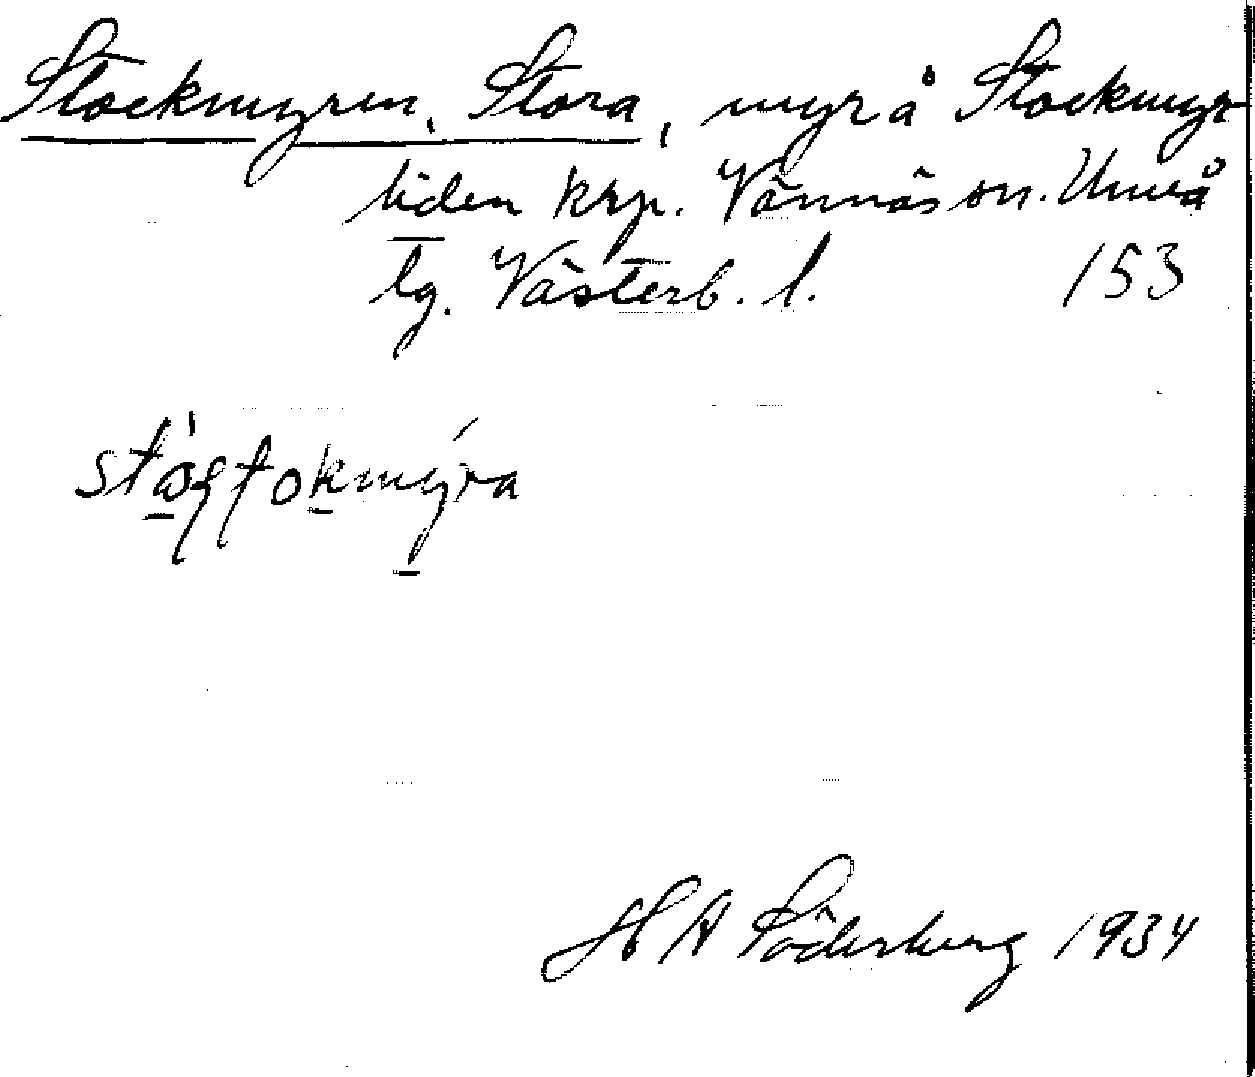 Stockmyren, Stora, myr å Stockmyr
liden krp. Vännäs sn. Umeå
tg. Västerb. l. 153
H A Söderberg 1934